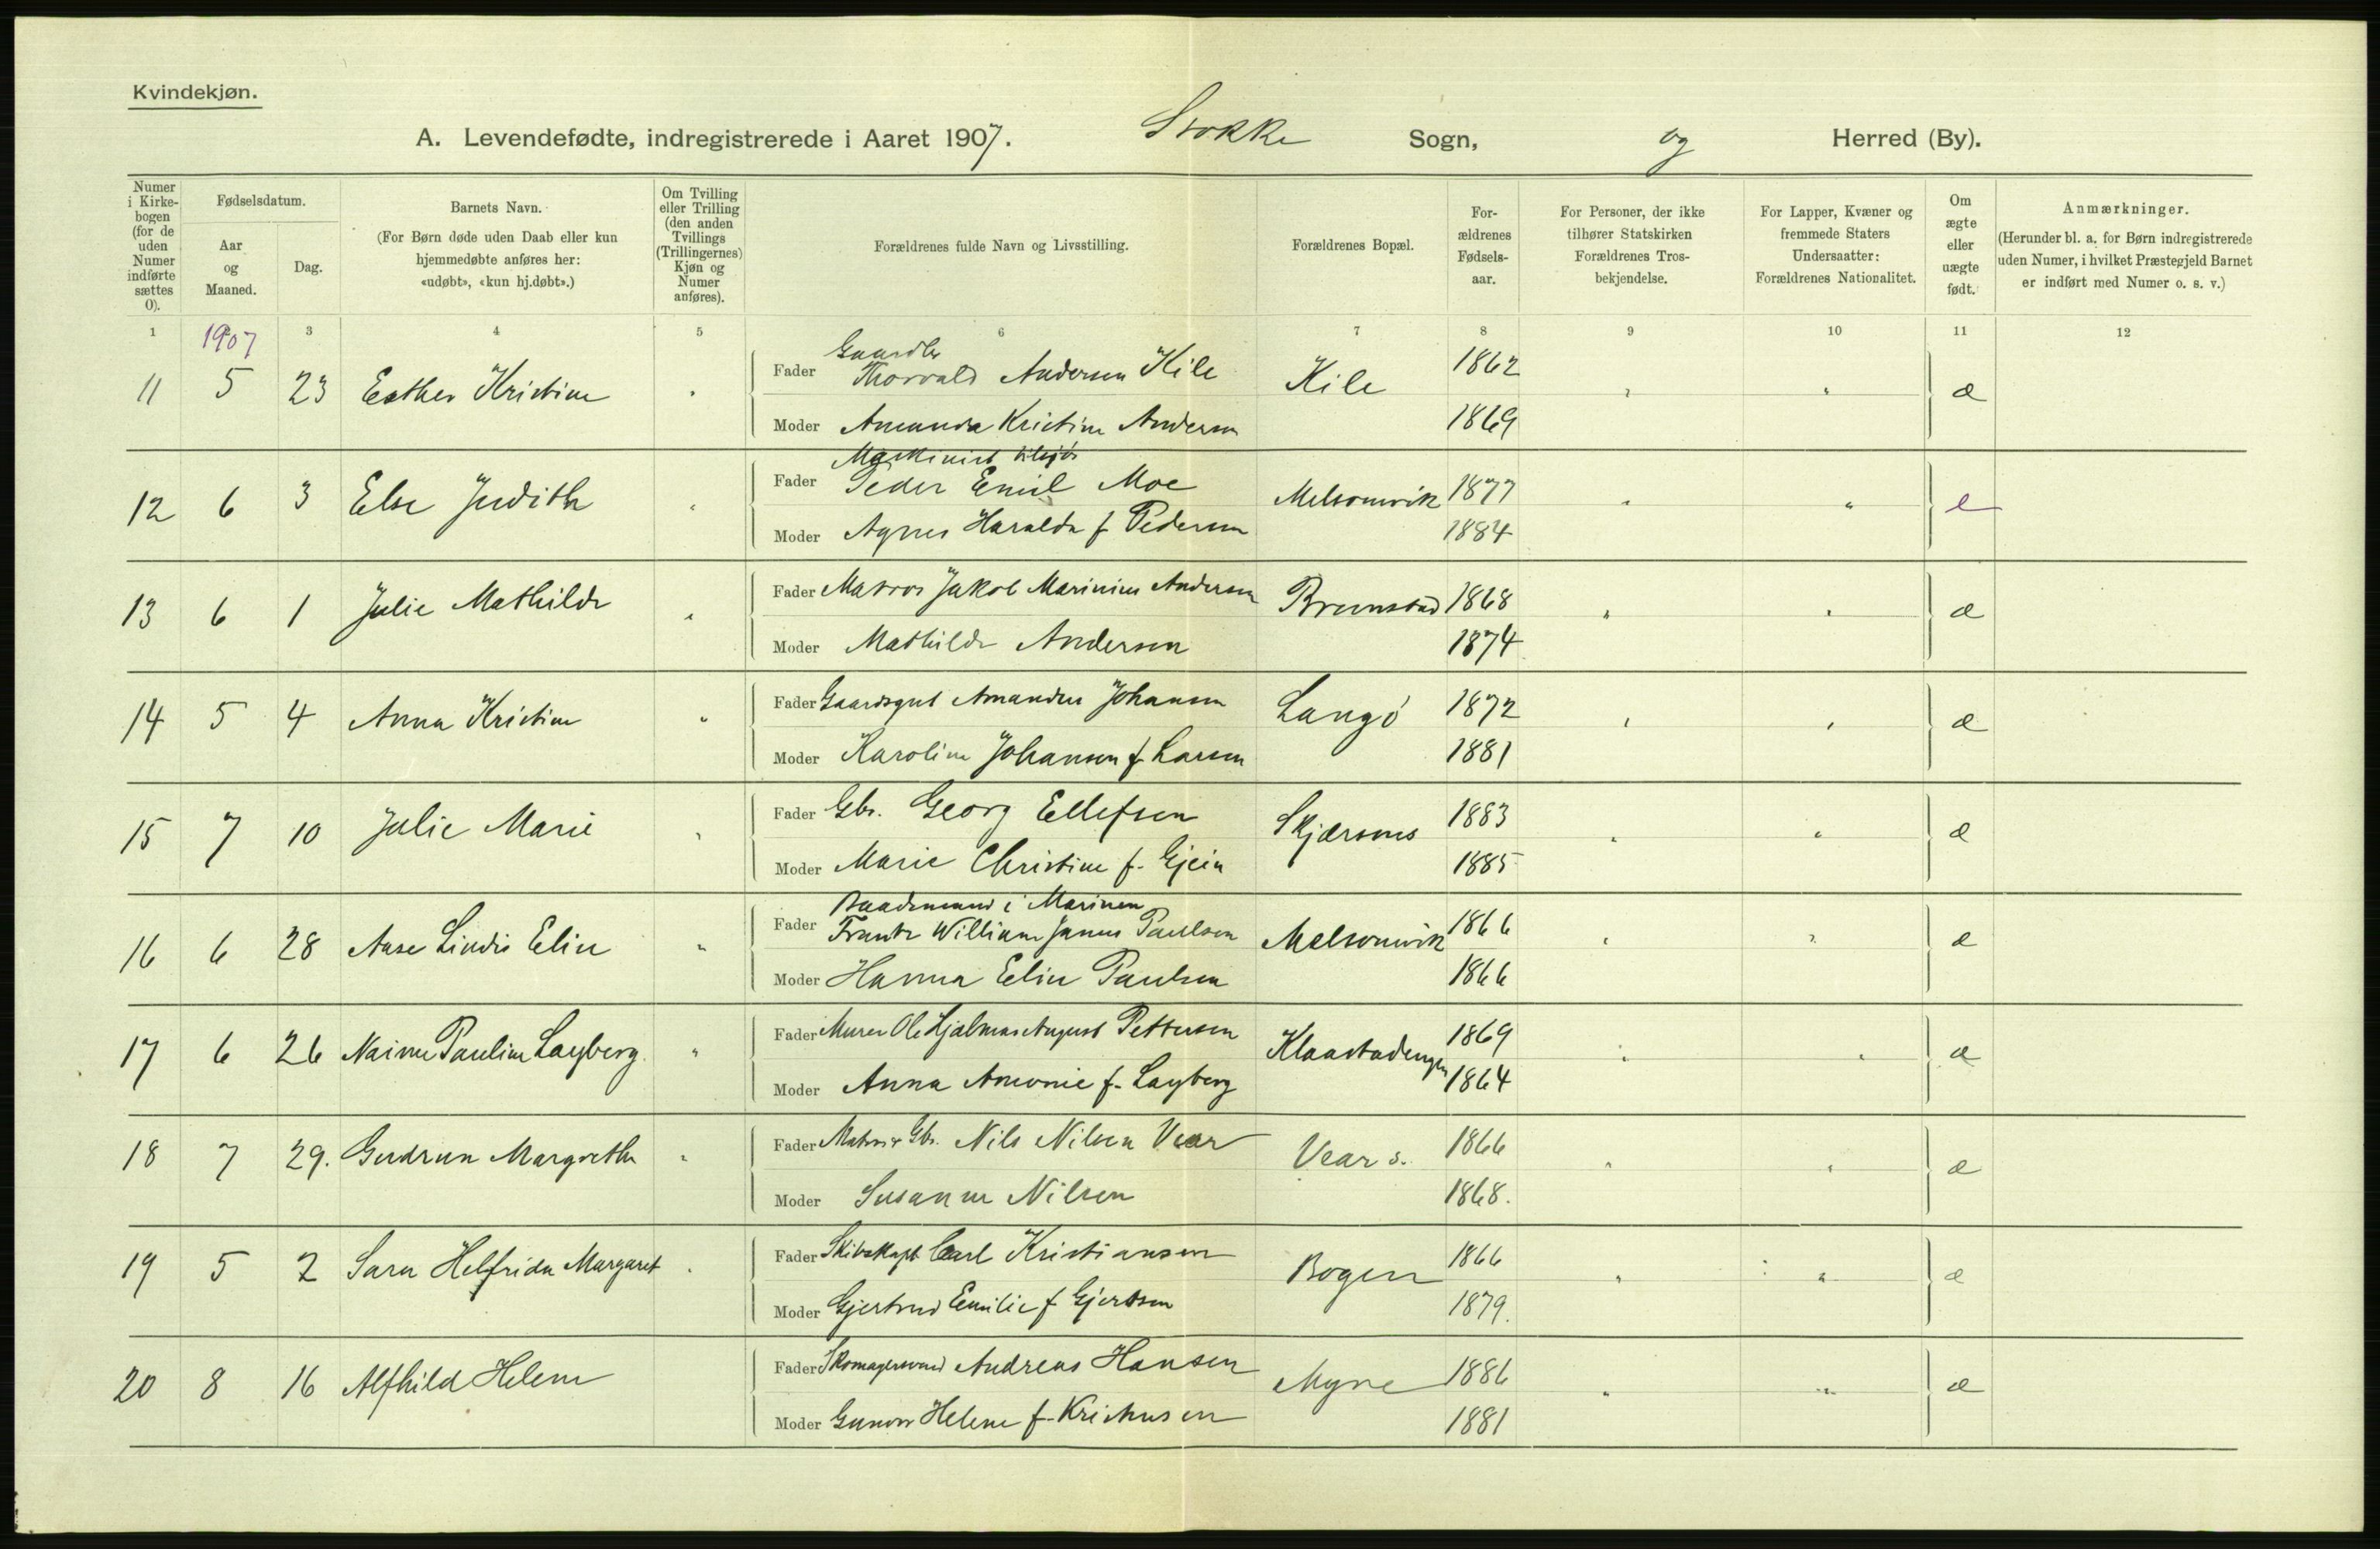 Kvindekjøn.
A. Levendefødte, indregistrerede i Aaret 1907. Stokke Sogn, og Herred (By).
Numer i Kirkebogen (for de uden Numer indførte sættes 0).
Fødselsdatum.
Aar og Maaned.
Dag.
Barnets Navn.
(For Børn døde uden Daab eller kun hjemmedøbte anføres her: «udøbt», «kun hj.døbt».)
Om Tvilling eller Trilling (den anden Tvillings (Trillingernes) Kjøn og Numer anføres).
Forældrenes fulde Navn og Livsstilling.
Forældrenes Bopæl.
Forældrenes Fødselsaar.
For Personer, der ikke tilhører Statskirken Forældrenes Trosbekjendelse.
For Lapper, Kvæner og fremmede Staters Undersaatter: Forældrenes Nationalitet.
Om ægte eller uægte født.
Anmærkninger.
(Herunder bl. a. for Børn indregistrerede uden Numer, i hvilket Præstegjeld Barnet er indført med Numer o. s. v.)
1 3 4 5 6 7 8 9 10 11 12
1907
11 5 23 Esther Kristine " Fader Gaardbr Thorvald Andersen Kile Kile 1862 " " æ
Moder Amanda Kristine Andersen 1869
12 6 3 Else Judith " Fader Maskinist tilsjøs Peder Emil Moe Melsomvik 1877 " " e
Moder Agnes Haralda f Pedersen 1884
13 6 1 Julie Mathilde " Fader Matros Jakob Marinius Andersen Brunstad 1868 " " æ
Moder Mathilde Andersen 1874
14 5 4 Anna Kristine " Fader Gaardsgut Amandus Johansen Langø 1872 " " æ
Moder Karoline Johansen f Larsen 1881
15 7 10 Julie Marie " Fader Gbr. Georg Ellefsen Skjærsnes 1883 " " æ
Moder Marie Christine f. Gjein 1885
16 6 28 Aase Lindis Elin " Fader Baadsmand i Marinen Frantz William Janus Paulsen Melsomvik 1866 " " æ
Moder Hanna Elin Paulsen 1866
17 6 26 Pauline Layberg " Fader Murer Ole Hjalmar August Pettersen Klaastadengen 1869 " " æ
Moder Anna Antonie f. Layberg 1864
18 7 29. Gudrun Margrethe " Fader Gbr. Nils Nilsen Vear Vear s. 1866 " " æ
Moder Susanne Nilsen 1868.
19 5 2 Sara Helfrida Margaret " Fader Skibskapt Carl Kristiansen Bogen 1866 " " æ
Moder Gjertrud Emilie f Gjertsen 1879.
20 8 16 Alfhild Helene Fader Skomagersvend Andreas Hansen Myre 1886 " " æ
Moder Gunvor Helene f. Kristiansen 1881